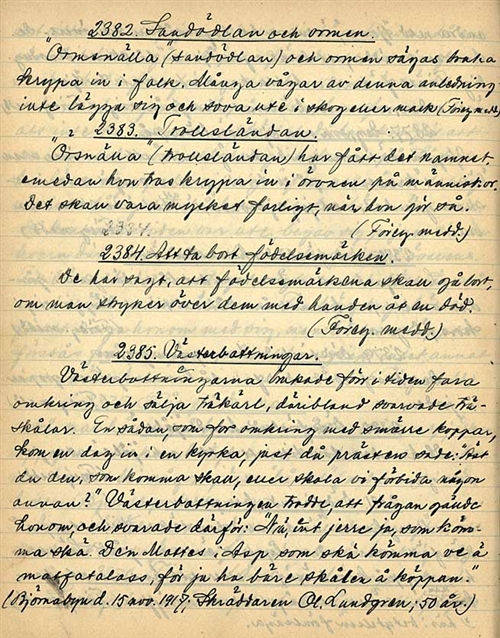 2382. Sandödlan och ormen.
"Ormenälla" (sandödlan) och ormen sägas bruka
krypa in i folk. Många vågar av denna anledning
inte lägga sig och sova ute i skog eller mark (Föreg. medd.)
2383. Trollsländan.
"Orsnälla" (trollsländan) har fått det namnet
emedan hon tros krypa in i öronen på människor.
Det skall vara mycket farligt, när hon gör så.
(Föreg. medd.)
2384. Att ta bort födelsemärken.
De har sagt, att födelsemärkena skall gå bort,
om man stryker över dem med handen åt en död.
(Föreg. medd.)
2385. Västerbottningar.
Västerbottningarna brukade för i tiden fara
omkring och sälja träkärl, däribland svarvade trä-
skålar. En sådan, som for omkring med smärre koppar,
kom en dag in i en kyrka, just då prästen sade: "Äst
du den, som komma skall, eller skola vi förbida någon
annan?" Västerbottningen trodde, att frågan gällde
honom, och svarade därför: "Nä, int jerre ja, som köm-
ma skä. Den Mattes i Asp som skä kömma ve ä
matfatalass, för ja ha båre skålen å köppan."
(Björnabyn d. 15 nov. 1917; Skräddaren Ol. Lundgren; 50 år.)